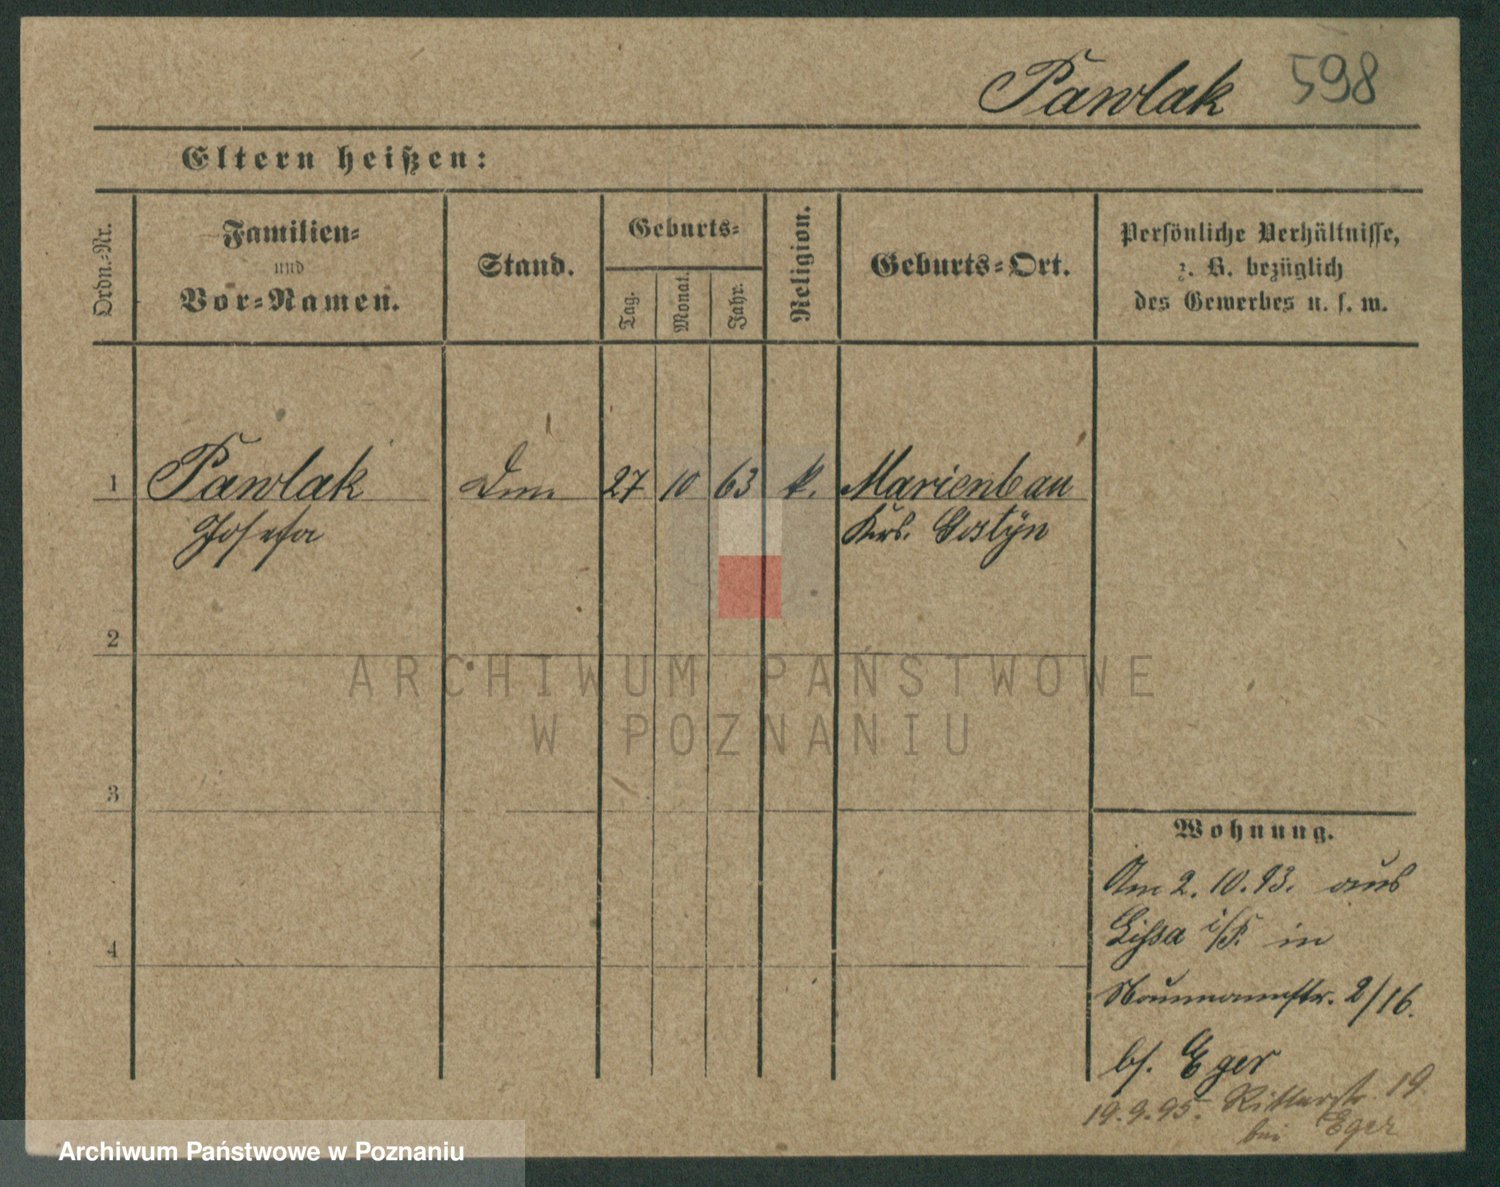 Pawlak 598
Eltern heißen:
Ordn.-Nr.
Familien-
und
Vor-Namen.
Stand.
Geburts-
Tag.
Monat.
Jahr.
Religion.
Geburts-Ort.
Persönliche Verhältnisse,
z. B. bezüglich
des Gewerbes u. s. w.
1 Pawlak 27 10 63 k. Marienbau
Josefa Krs. Gostÿn
2
3
4
ARCHIWUM PAŃSTWOWE
W POZNANIU
Wohnung.
Am 2.10.93. aus
Lissa i/P. in
Naumannstr. 2/16.
bf. Eger
19.9.95. Ritterstr. 19
bei Eger
Archiwum Państwowe w Poznaniu